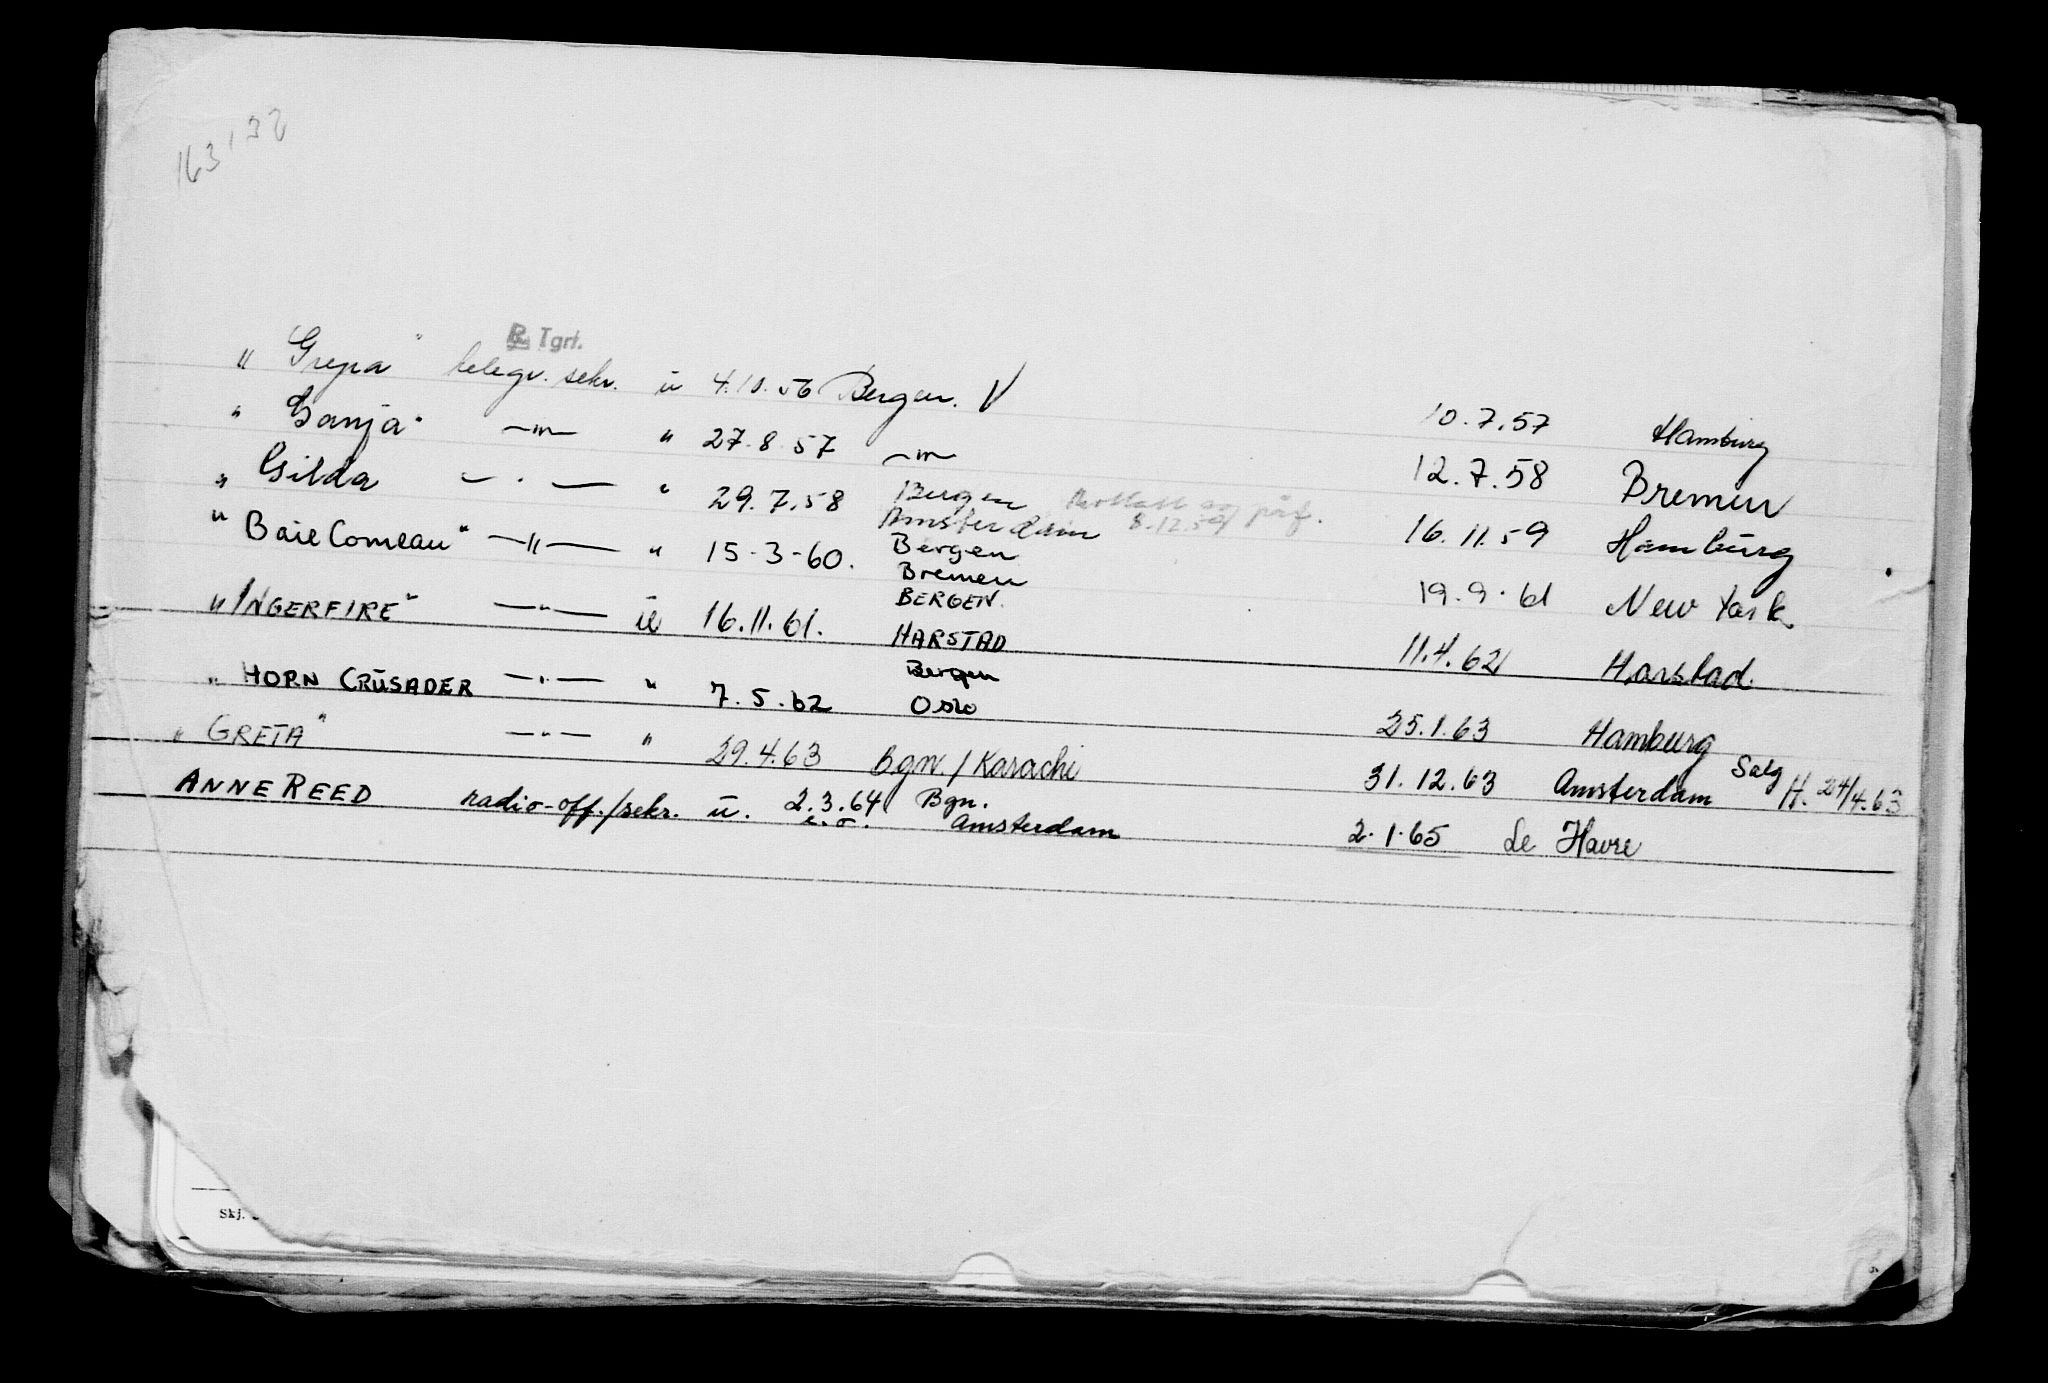 163132
R. Tgrf.
" Grepa " telegr. sekr. u 4.10.56 Bergen. V 10.7.57 Hamburg
" Ganja " —"— " 27.8.57 —"— 12.7.58 Bremen
" Gilda — " — " 29.7.58 Bergen
Amsterdam 8.12.59 påf. 16.11.59 Hamburg
" Baie Comeau " —"— " 15-3-60. Bergen
Bremen 19.9.61 New York
" INGERFIRE " —"— u 16.11.61. BERGEN.
HARSTAD 11.4.62 Harstad.
" HORN CRUSADER —"— " 7.5.62 Bergen
Oslo 25.1.63 Hamburg
" GRETA " —"— " 29.4.63 Bgn. / Karachi 31.12.63 Amsterdam Salg H. 24/4.63
ANNE REED radio-off./sekr. u. 2.3.64 Bgn.
e.o. Amsterdam 2.1.65 Le Havre
Skj.